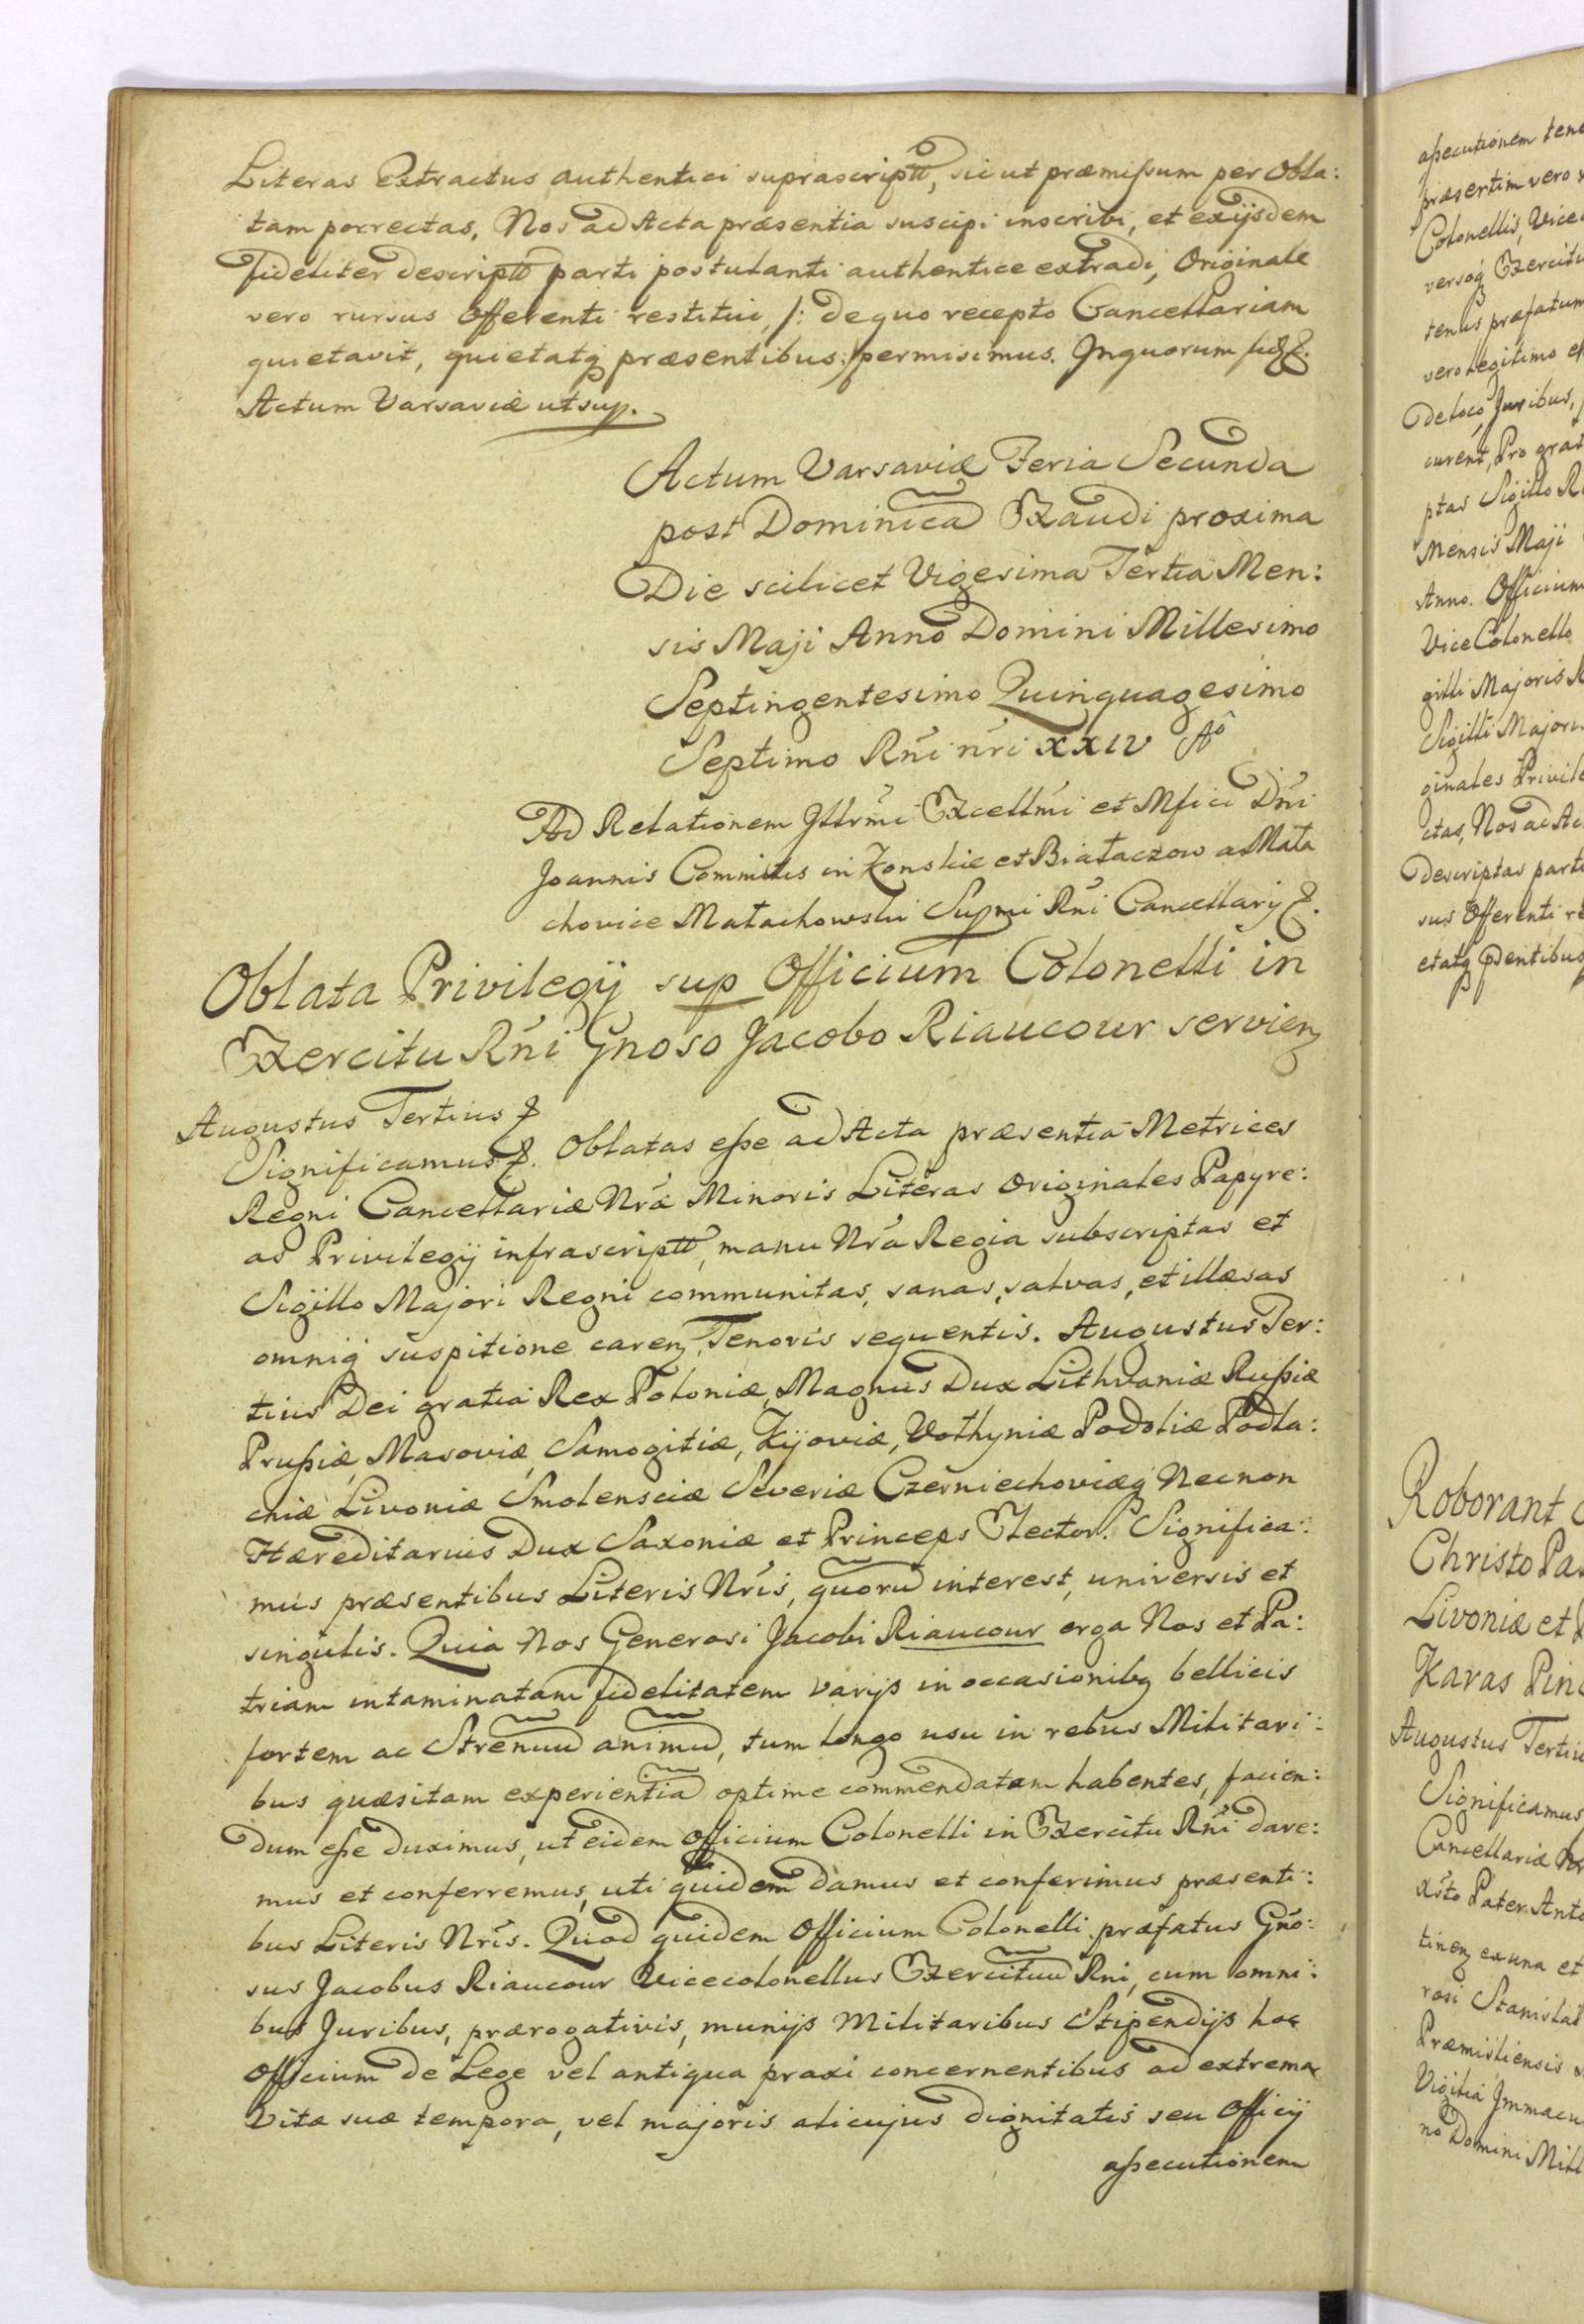 Literas Extractus authentici suprascriptt, sicut præmissum per obla:
tam porrectas, Nos ad Acta præsentia suscipi inscribi, et ex ijsdem
fideliter descriptt parti postulanti authentice extradi, Originale
vero rursus offerenti restitui, /: de quo recepto Cancellariam
quietavit, quietatq præsentibus :/ permisimus. In quorum fidẽ &.
Actum Varsaviæ ut sup.
Actum Varsaviæ Feria Secunda
post Dominicã Exaudi proxima
Die scilicet Vigesima Tertia Men:
sis Maji Anno Domini Millesimo
Septingentesimo Quinquagesimo
Septimo Rńi nri XXIV Aô
Ad Relationem Illrmi Excellmi et Mfici Dńi
Joannis Commitis in Konskie et Białaczow a Mała
chovice Małachowski Supmi Rńi Cancellarij &.
Oblata Privilegij sup Officium Colonelli in
Exercitu Rńi Gnoso Jacobo Riaucour servieñ
Augustus Tertius &
Significamus &. Oblatas esse ad Acta præsentia Metrices
Regni Cancellariæ Nræ Minoris Literas originales Papyre:
as Privilegij infrascriptt, manu Nra Regia subscriptas et
Sigillo Majori Regni communitas, sanas, salvas, et illæsas
omniq suspitione careñ, Tenoris sequentis. Augustus Ter:
tius Dei gratia Rex Poloniæ, Magnus Dux Lithvaniæ Russiæ
Prussiæ, Masoviæ, Samogitiæ, Kijoviæ, Volhyniæ Podoliæ Podla:
chiæ Livoniæ Smolensciæ Severiæ Czerniechoviæq Necnon
Hæreditarius Dux Saxoniæ et Princeps Elector. Significa:
mus præsentibus Literis Nris, quorũ interest, universis et
singulis. Quia Nos Generosi Jacobi Riaucour erga Nos et Pa:
triam intaminatam fidelitatem varijs in occasionibq bellicis
fortem ac Strenuũ animũ, tum longo usu in rebus Militari:
bus quæsitam experientiã optime commendatam habentes, facien:
dum esse duximus, ut eidem officium Colonelli in Exercitu Rńi dare:
mus et conferremus, uti quidem damus et conferimus præsenti:
bus Literis Nris. Quod quidem Officium Colonelli præfatus Gńo:
sus Jacobus Riaucour Vicecolonellus Exercituũ Rńi, cum omni:
bus Juribus, prærogativis, munijs Militaribus Stipendijs hoc
officium de Lege vel antiqua praxi concernentibus ad extrema
Vitæ suæ tempora, vel majoris alicujus dignitatis seu Officij
assecutionem
assecutionem
præsertim vero
Colonellis, Vice
versoq Exercitu
tenus præfatum
vero legitimo
De loco, Juribus,
curent, Pro
ptas Sigillo
Mensis Maji
Anno. Officium
Vice Colonello
gilli Majoris
Sigilli Majoris
ginales
ctas, Nos ad
Descriptas
sus Offerenti
etatq pńtibus
Roborant
Christo
Livoniæ et
Karas
Augustus
Significamus
Cancellariæ
Xsto Pater
tineñ ex una et
rosi
Præmisliensis
Vigilia
no Domini